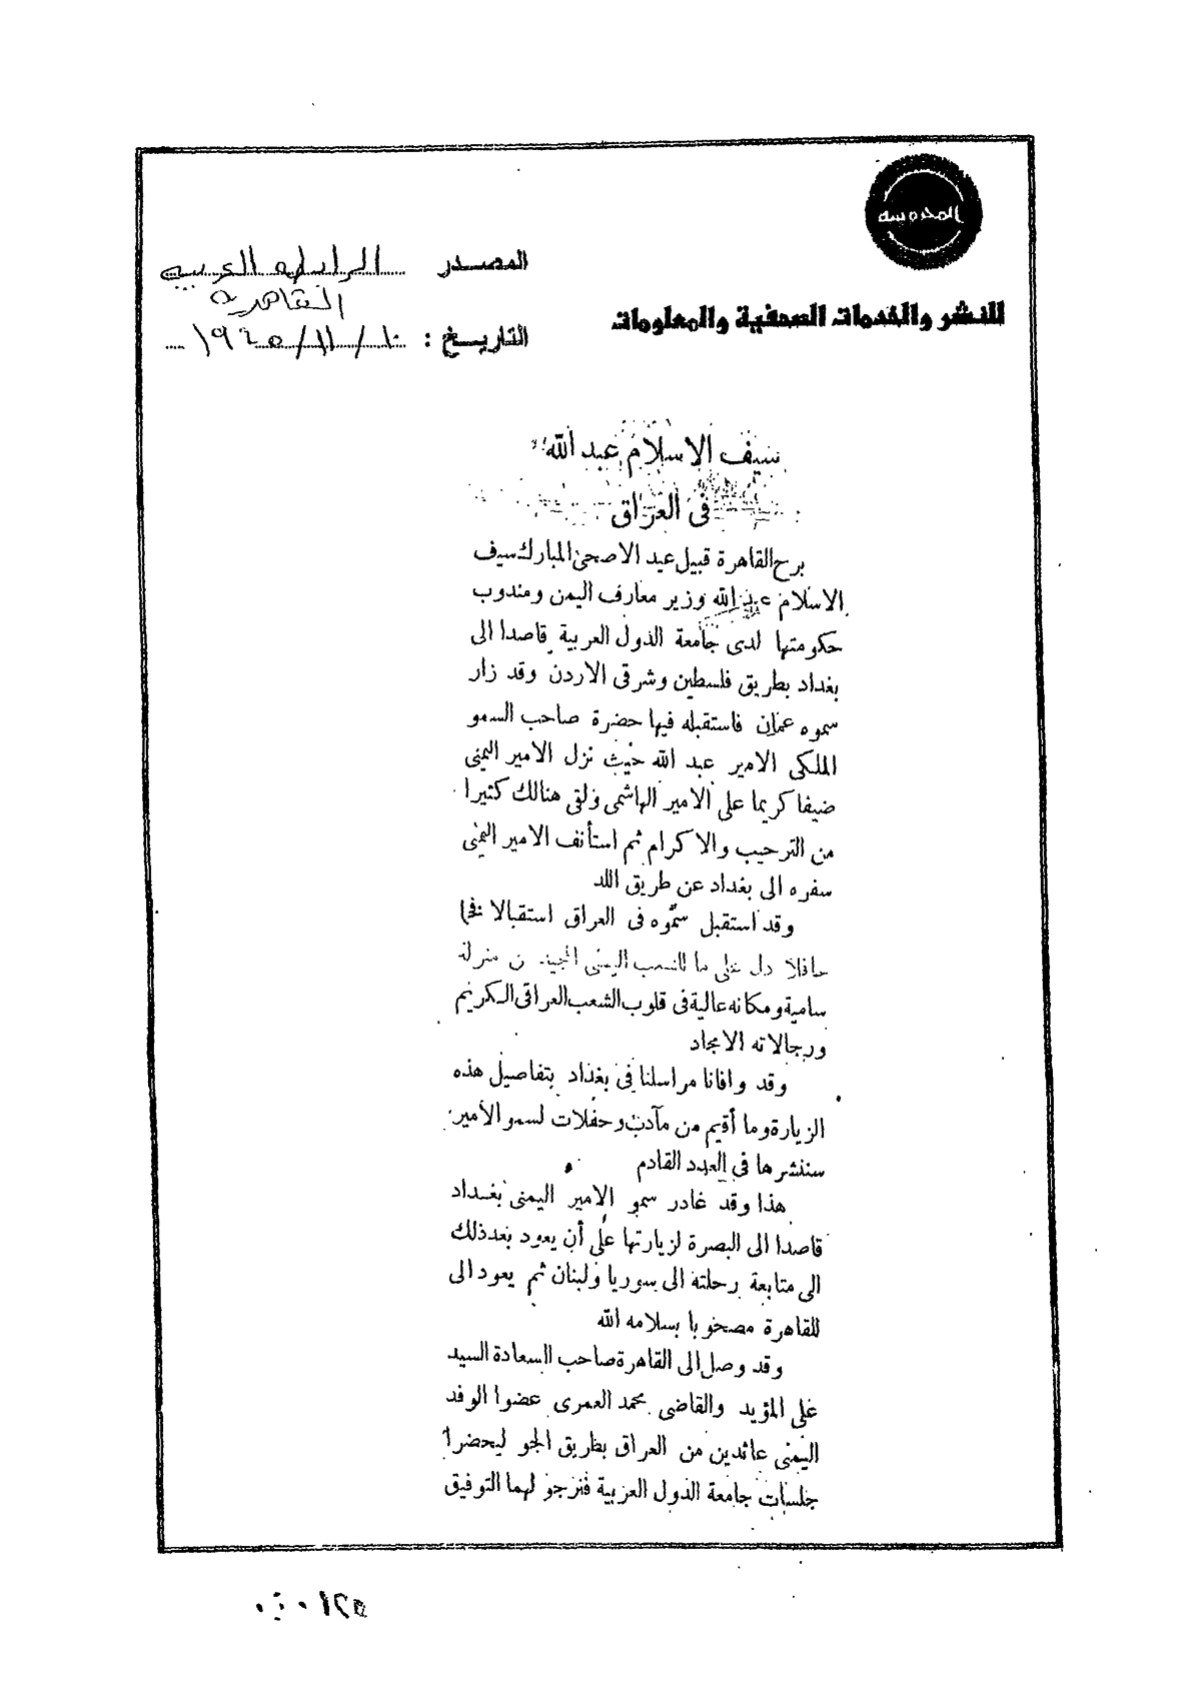 المحروسه
للنشر والخدمات الصحفية والمعلومات
المصدر الرابطه العربيه
القاهرية
التاريخ : ١٠/١١/١٩٤٥
سيف الاسلام عبد الله
فى العراق
برح القاهرة قبيل عيد الاضحى المبارك سيف
الاسلام عبد الله وزير معارف اليمن ومندوب
حكومتها لدى جامعة الدول العربية قاصدا الى
بغداد بطريق فلسطين وشرقى الاردن وقد زار
سموه عمان فاستقبله فيها حضرة صاحب السمو
الملكى الامير عبد الله حيث نزل الامير اليمنى
ضيفا كريما على الامير الهاشمى ولقى هنالك كثيرا
من الترحيب والاكرام ثم استأنف الامير اليمنى
سفره الى بغداد عن طريق اللد
وقد استقبل سموه فى العراق استقبالا فخما
حافلا دل على ما للشعب اليمنى منزلة
سامية ومكانه عالية فى قلوب الشعب العراقى الكريم
ورجالاته الامجاد
وقد وافانا مراسلنا فى بغداد بتفاصيل هذه
الزيارة وما أقيم من مآدب وحفلات لسمو الأمير
سننشرها فى العدد القادم
هذا وقد غادر سمو الامير اليمنى بغداد
قاصدا الى البصرة لزيارتها على أن يعود بعد ذلك
الى متابعة رحلته الى سوريا ولبنان ثم يعود الى
القاهرة مصحوبا بسلامه الله
وقد وصل الى القاهرة صاحب السعادة السيد
على المؤيد والقاضى محمد العمرى عضوا الوفد
اليمنى عائدين من العراق بطريق الجو ليحضرا
جلسات جامعة الدول العربية فنرجو لهما التوفيق